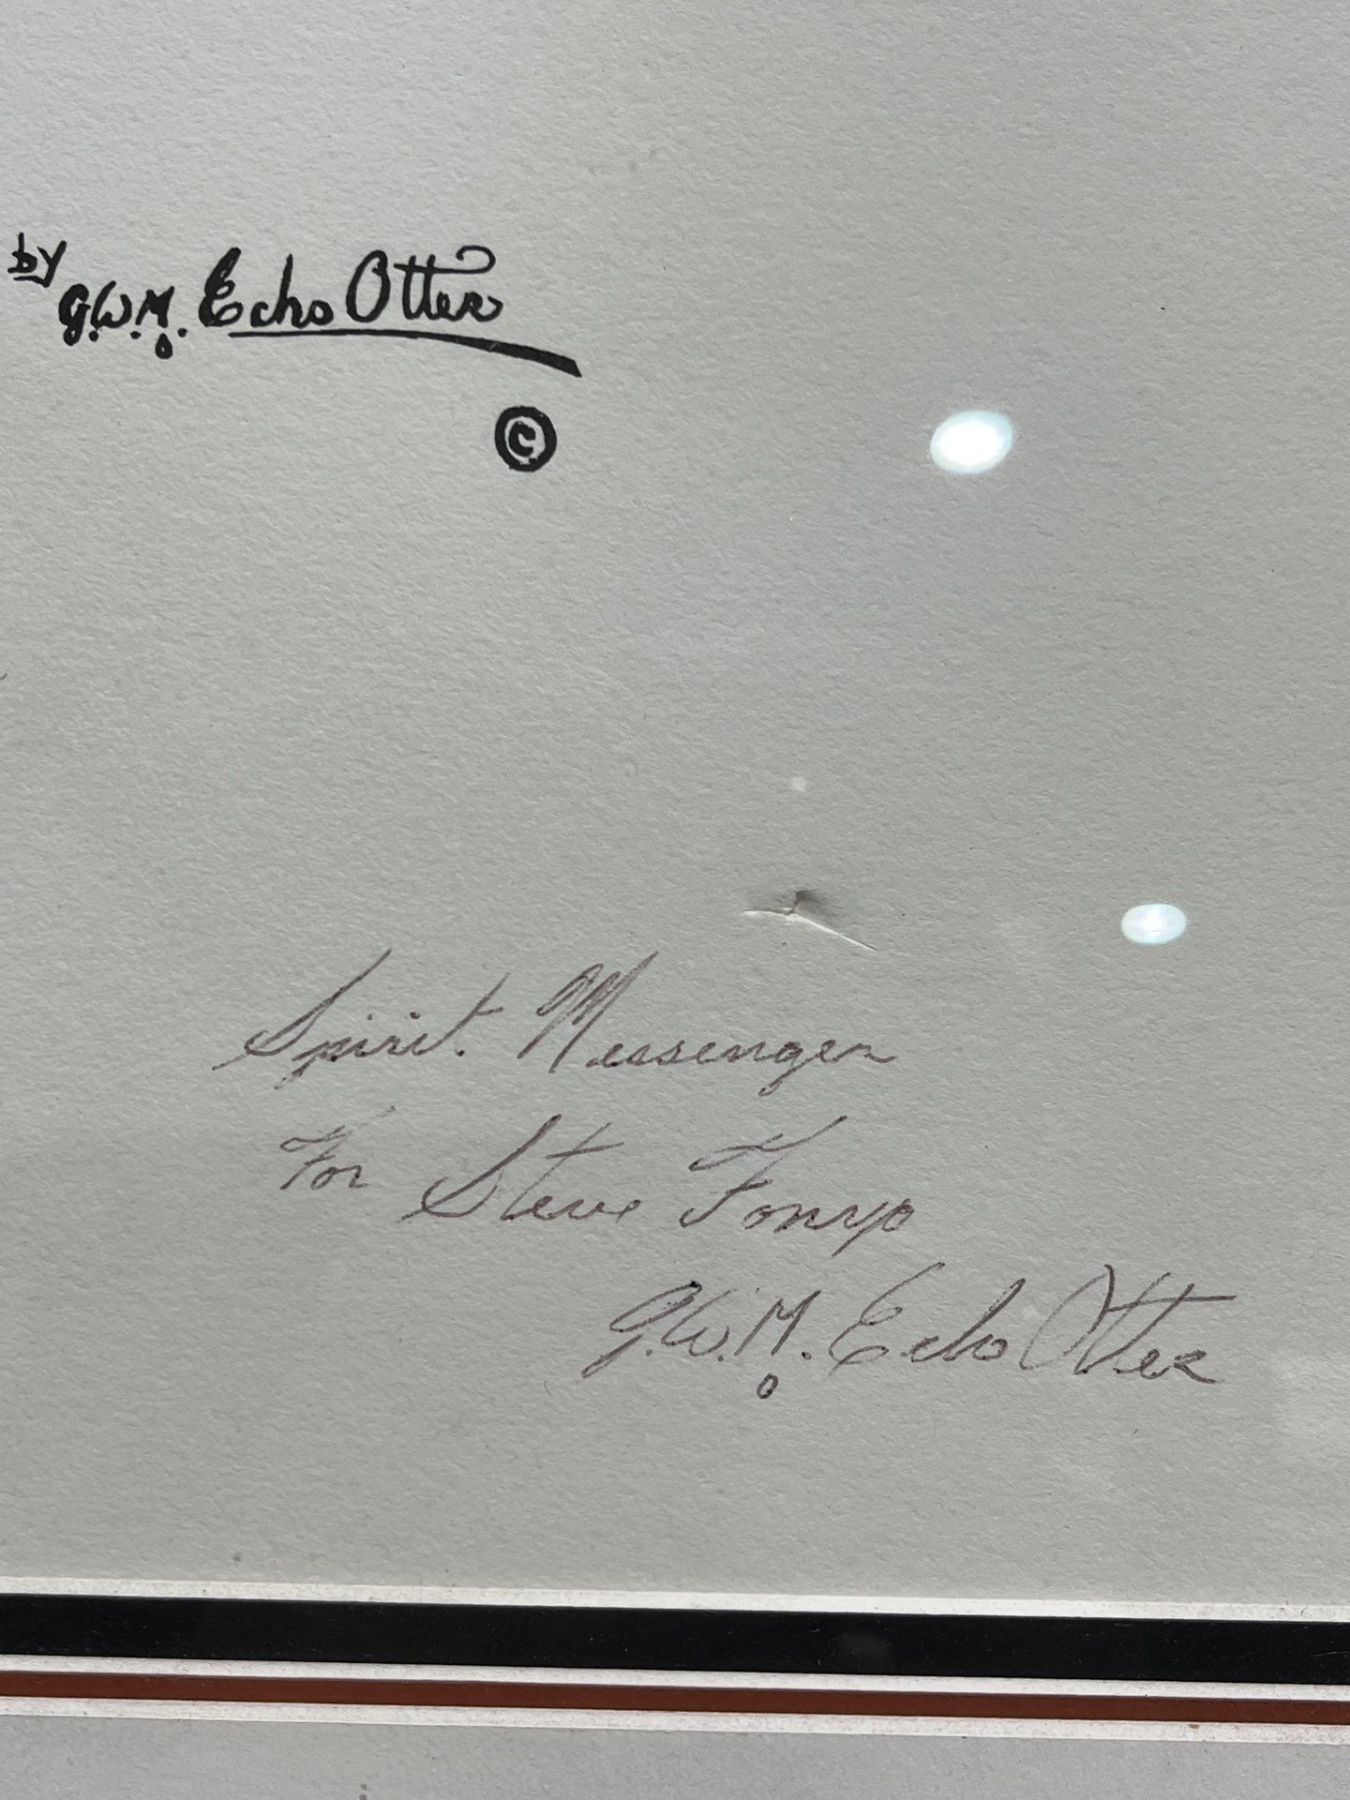 by
G.W.M. Echo Otter
©
Spirit Messenger
For Steve Fonyo
G.W.M. Echo Otter